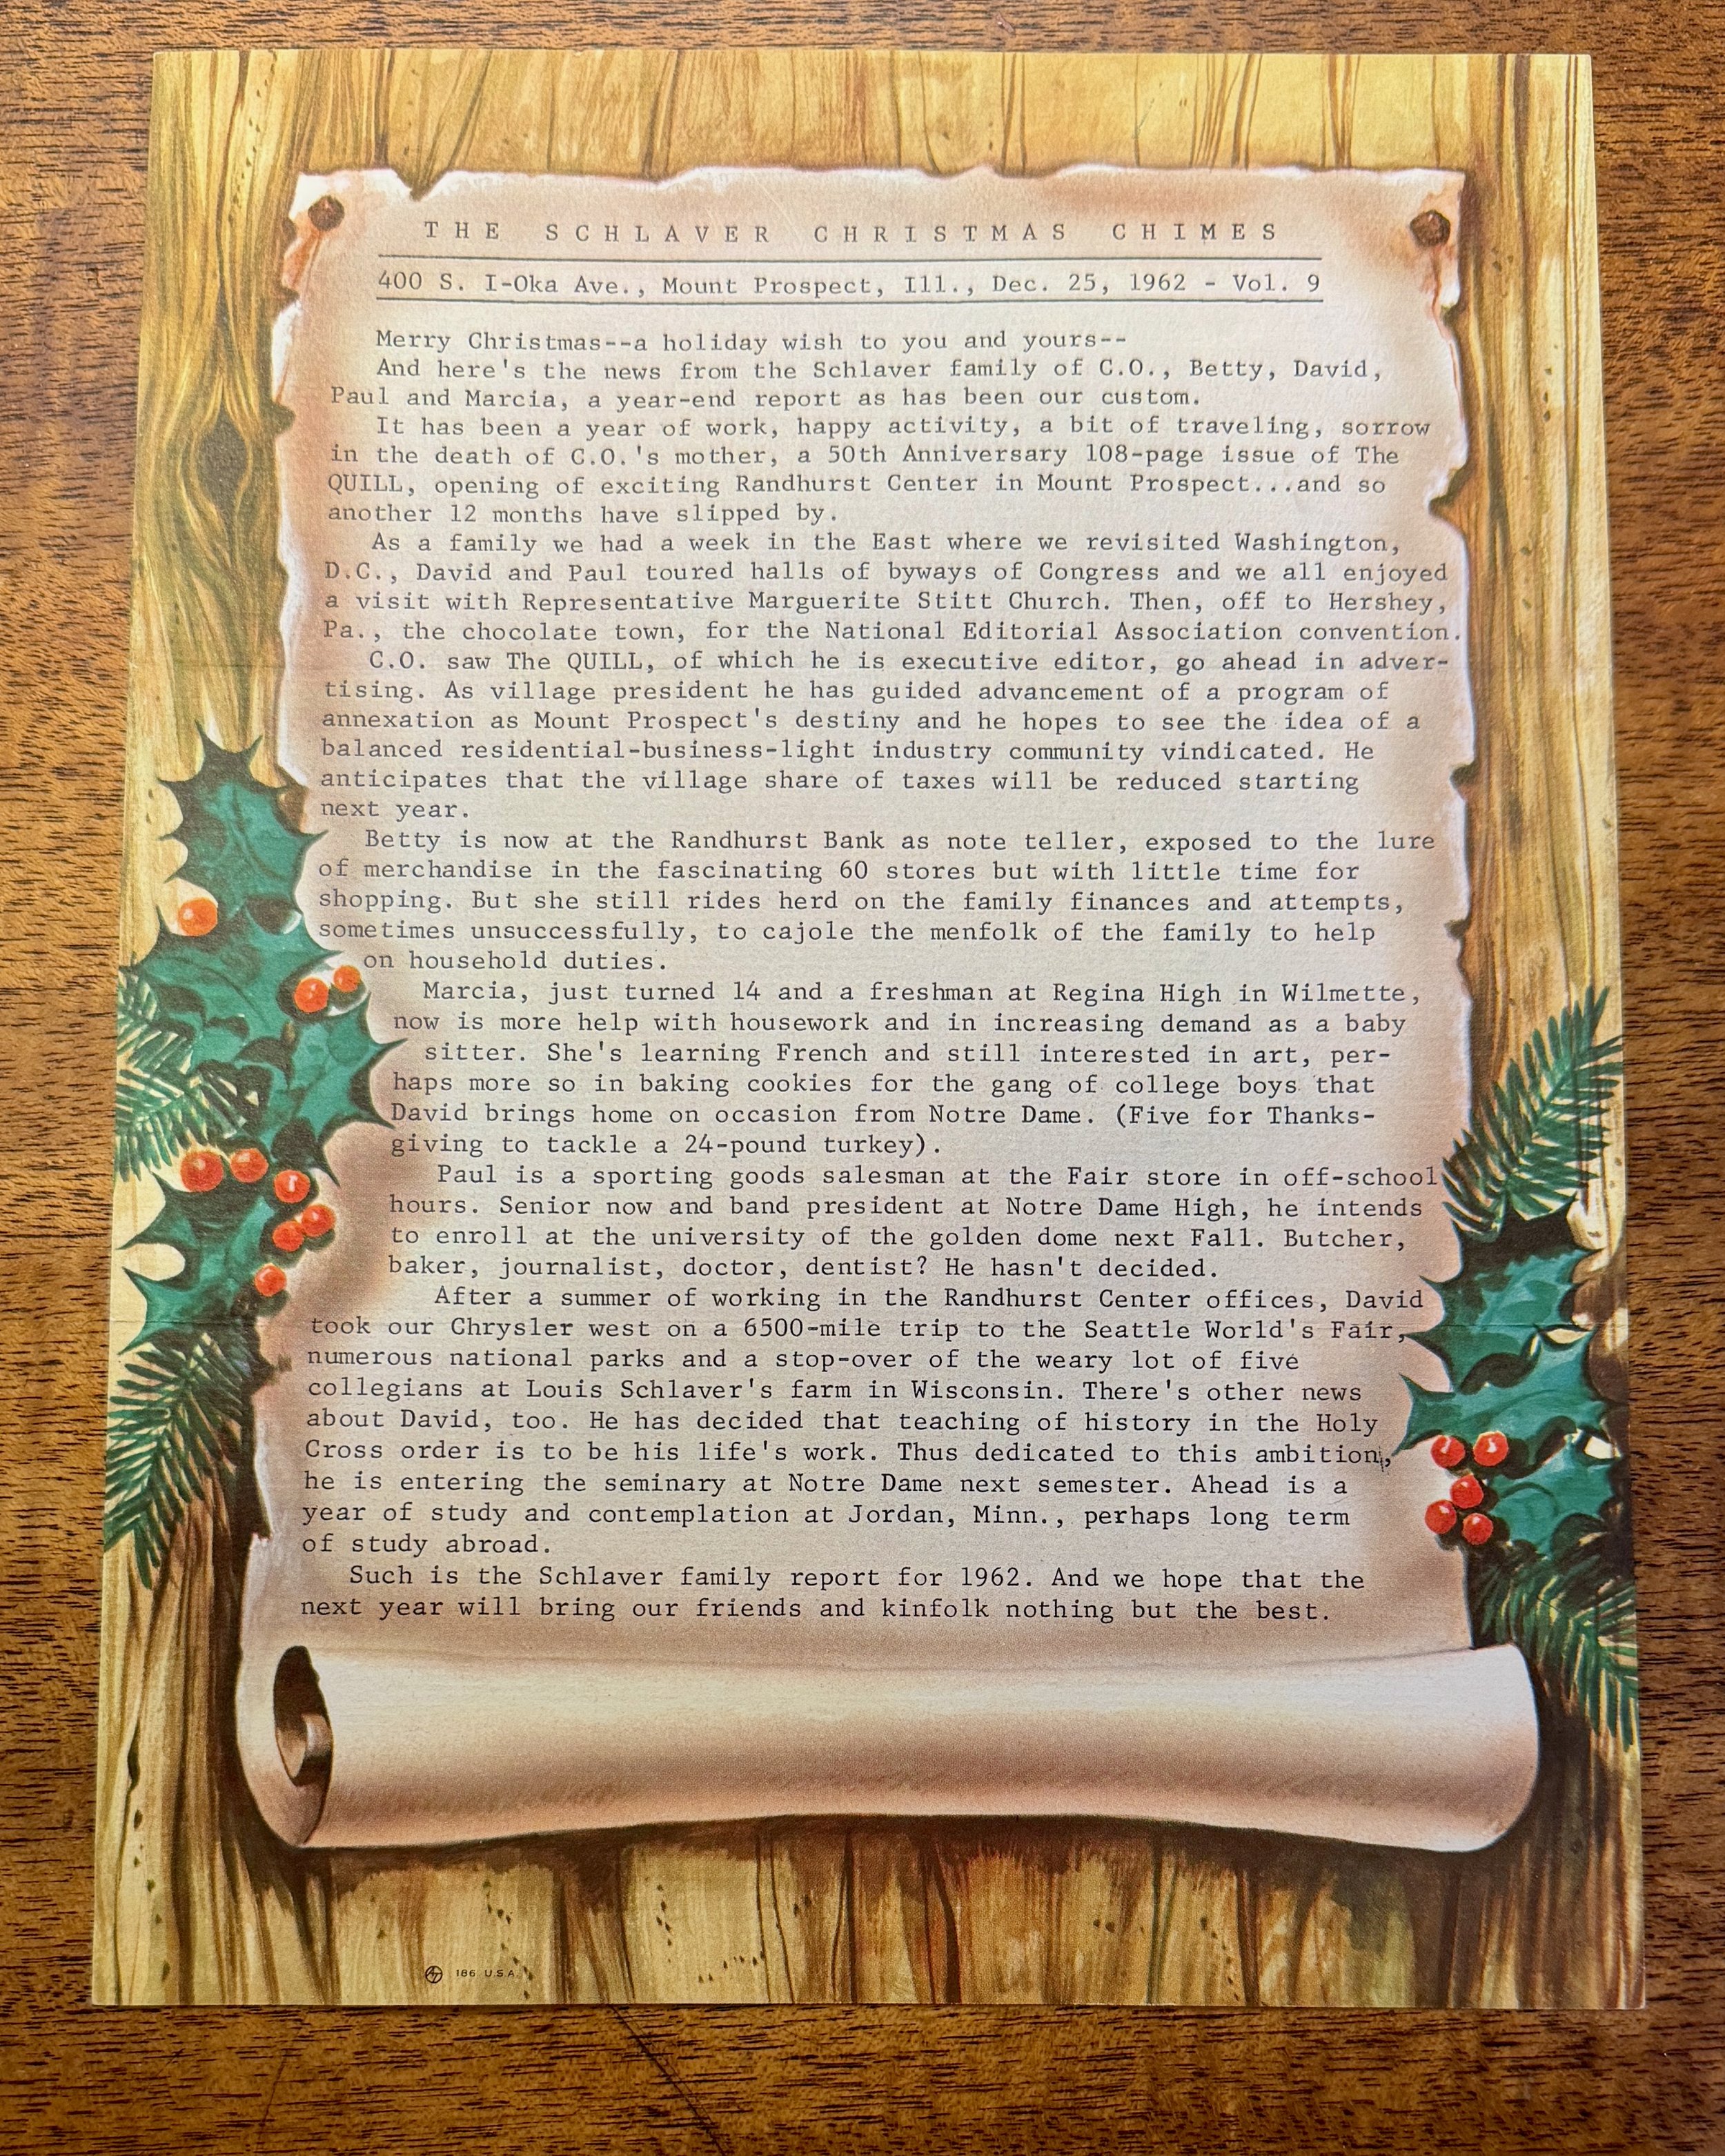 THE SCHLAVER CHRISTMAS CHIMES
400 S. I-Oka Ave., Mount Prospect, Ill., Dec. 25, 1962 - Vol. 9
Merry Christmas--a holiday wish to you and yours--
And here's the news from the Schlaver family of C.O., Betty, David,
Paul and Marcia, a year-end report as has been our custom.
It has been a year of work, happy activity, a bit of traveling, sorrow
in the death of C.O.'s mother, a 50th Anniversary 108-page issue of The
QUILL, opening of exciting Randhurst Center in Mount Prospect...and so
another 12 months have slipped by.
As a family we had a week in the East where we revisited Washington,
D.C., David and Paul toured halls of byways of Congress and we all enjoyed
a visit with Representative Marguerite Stitt Church. Then, off to Hershey,
Pa., the chocolate town, for the National Editorial Association convention.
C.O. saw The QUILL, of which he is executive editor, go ahead in adver-
tising. As village president he has guided advancement of a program of
annexation as Mount Prospect's destiny and he hopes to see the idea of a
balanced residential-business-light industry community vindicated. He
anticipates that the village share of taxes will be reduced starting
next year.
Betty is now at the Randhurst Bank as note teller, exposed to the lure
of merchandise in the fascinating 60 stores but with little time for
shopping. But she still rides herd on the family finances and attempts,
sometimes unsuccessfully, to cajole the menfolk of the family to help
on household duties.
Marcia, just turned 14 and a freshman at Regina High in Wilmette,
now is more help with housework and in increasing demand as a baby
sitter. She's learning French and still interested in art, per-
haps more so in baking cookies for the gang of college boys that
David brings home on occasion from Notre Dame. (Five for Thanks-
giving to tackle a 24-pound turkey).
Paul is a sporting goods salesman at the Fair store in off-school
hours. Senior now and band president at Notre Dame High, he intends
to enroll at the university of the golden dome next Fall. Butcher,
baker, journalist, doctor, dentist? He hasn't decided.
After a summer of working in the Randhurst Center offices, David
took our Chrysler west on a 6500-mile trip to the Seattle World's Fair,
numerous national parks and a stop-over of the weary lot of five
collegians at Louis Schlaver's farm in Wisconsin. There's other news
about David, too. He has decided that teaching of history in the Holy
Cross order is to be his life's work. Thus dedicated to this ambition,
he is entering the seminary at Notre Dame next semester. Ahead is a
year of study and contemplation at Jordan, Minn., perhaps long term
of study abroad.
Such is the Schlaver family report for 1962. And we hope that the
next year will bring our friends and kinfolk nothing but the best.
186 U.S.A.